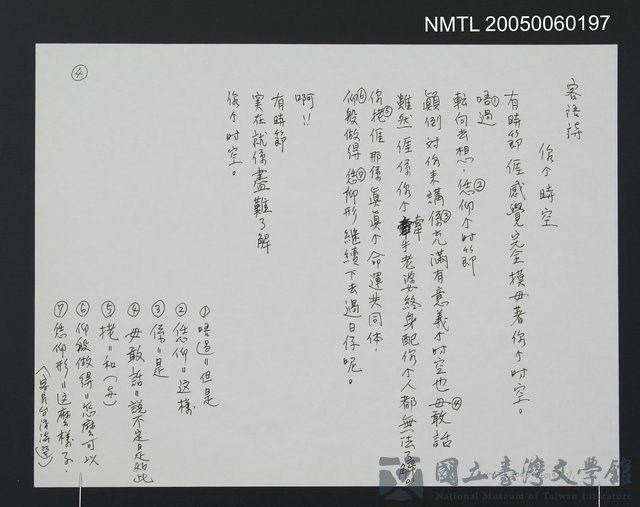 NMTL 20050060197
④
客語詩
你个時空
有時節𠊎感覺完全摸毋著你个时空。
唔過①
転向去想，恁仰②个时節
顛倒対你来講係③充滿有意義个时空也毋敢話④
雖然𠊎係你个牽手老婆終身配你个人都無法了解。
你⑤𠊎那係真真个命運共同体，
仰般做得⑥恁仰形⑦継續下去過日仔呢。
啊!!
有時節
実在就係盡難了解
你个时空。
①唔過=但是
②恁仰=这樣
③係=是
④毋敢話=說不定是如此
⑤㧯=和(与)
⑥仰般做得=怎麼可以
⑦恁仰形=这麼樣子.
國立臺灣文學館
National Museum of Taiwan Literature